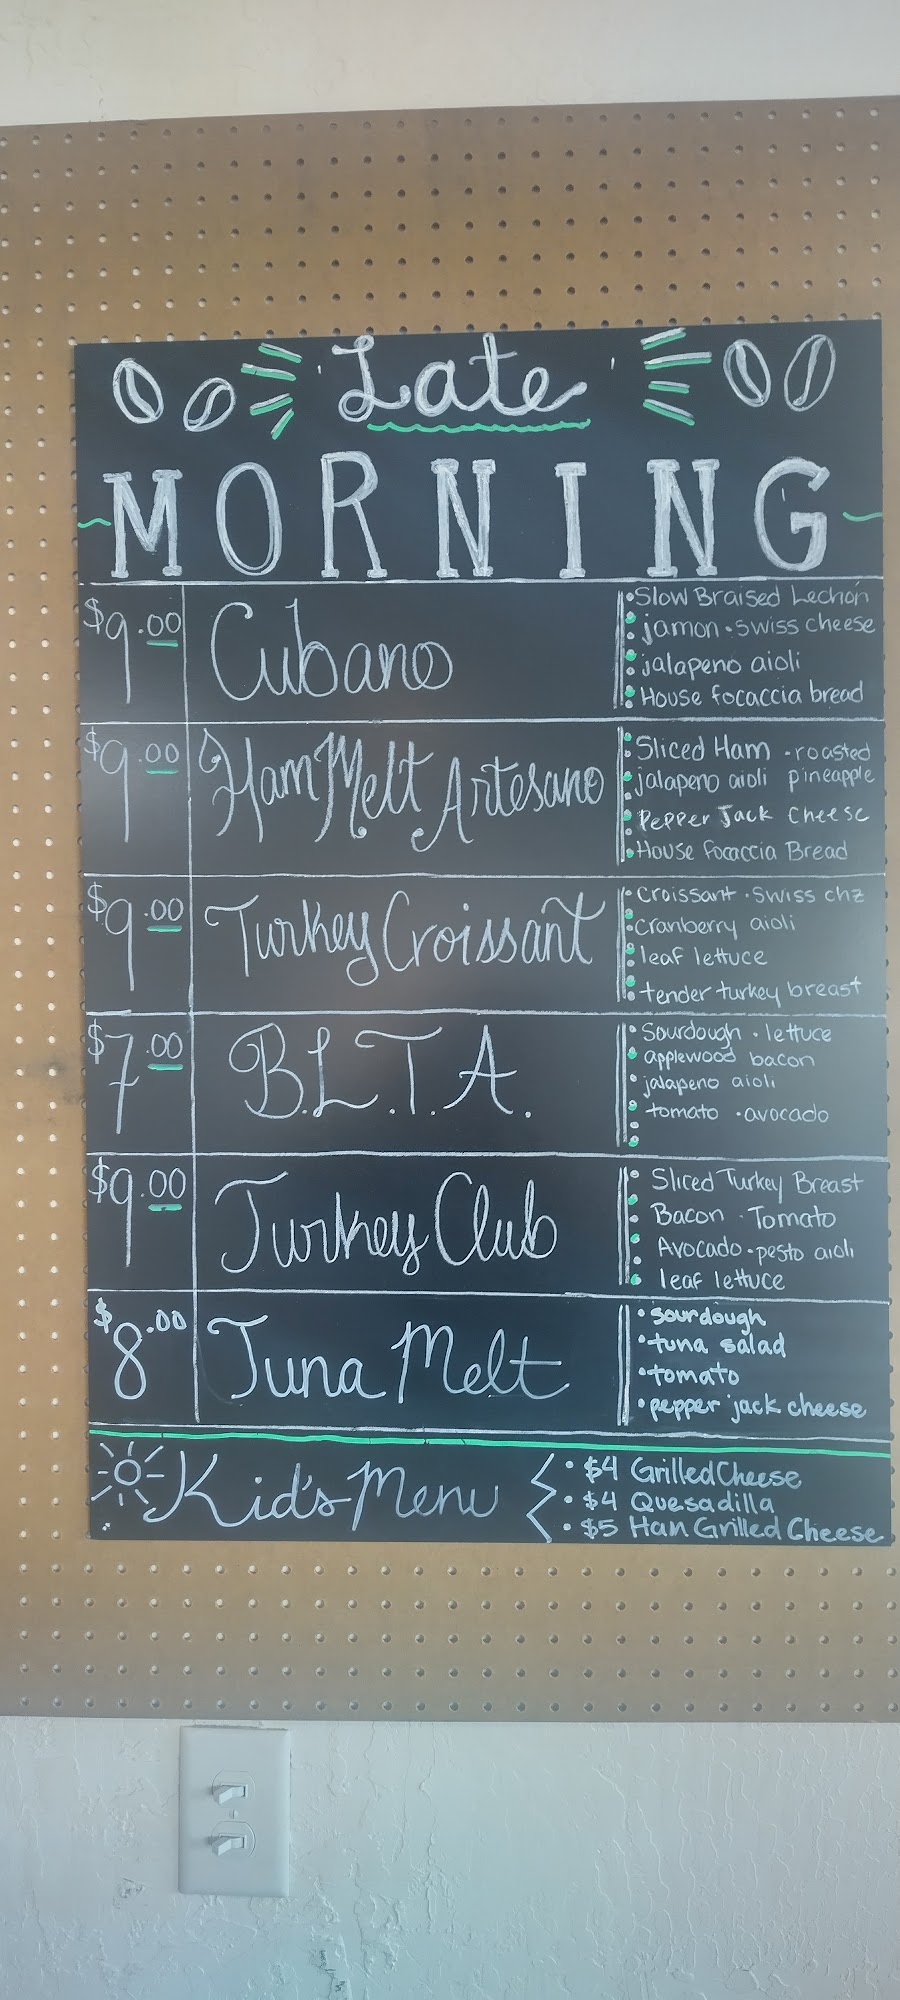 Late
MORNING
$9.00 Cubano
• Slow Braised Lechón
• jamon • swiss cheese
• jalapeno aioli
• House focaccia bread
$9.00 Ham Melt Artesano
• Sliced Ham • roasted
• jalapeno aioli pineapple
• Pepper Jack Cheese
• House Focaccia Bread
$9.00 Turkey Croissant
• Croissant • Swiss chz
• cranberry aioli
• leaf lettuce
• tender turkey breast
$7.00 B.L.T.A.
• Sourdough • lettuce
• applewood bacon
• jalapeno aioli
• tomato • avocado
$9.00 Turkey Club
• Sliced Turkey Breast
• Bacon • Tomato
• Avocado • pesto aioli
• leaf lettuce
$8.00 Tuna Melt
• sourdough
• tuna salad
• tomato
• pepper jack cheese
Kid's Menu
• $4 Grilled Cheese
• $4 Quesadilla
• $5 Han Grilled Cheese